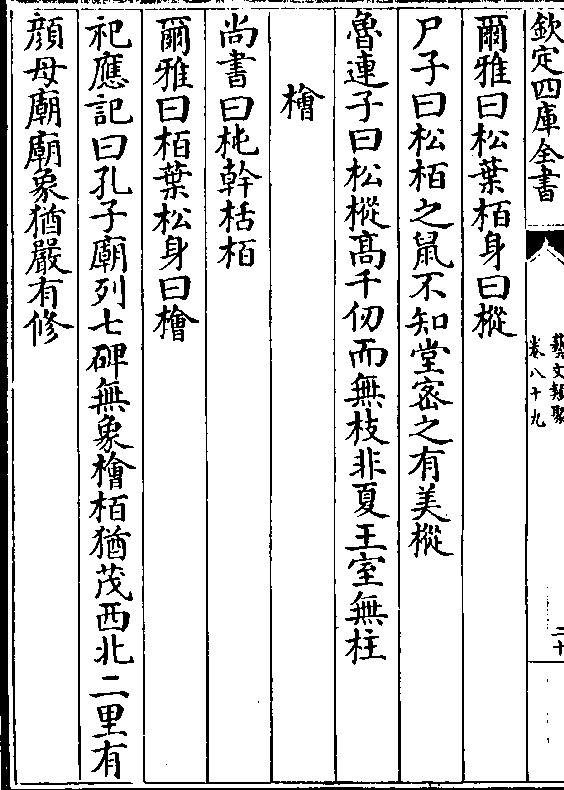 欽定四庫全書
藝文類聚
卷八十九
二十
爾雅曰松葉栢身曰樅
尸子曰松栢之鼠不知堂宻之有美樅
魯連子曰松樅高千仞而無枝非夏王室無柱
檜
尚書曰杶幹栝栢
爾雅曰栢葉松身曰檜
祀應記曰孔子廟列七碑無象檜栢猶茂西北二里有
顔母廟廟象猶嚴有修